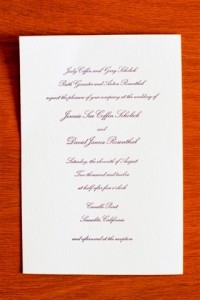 Judy Coffin and Gary Scholick
Ruth Gensister and Anton Rosenthal
request the pleasure of your company at the wedding of
Jennie Sea Coffin Scholick
and
David James Rosenthal
Saturday, the eleventh of August
Two thousand and twelve
at half after five o'clock
Cavallo Point
Sausalito, California
and afterward at the reception